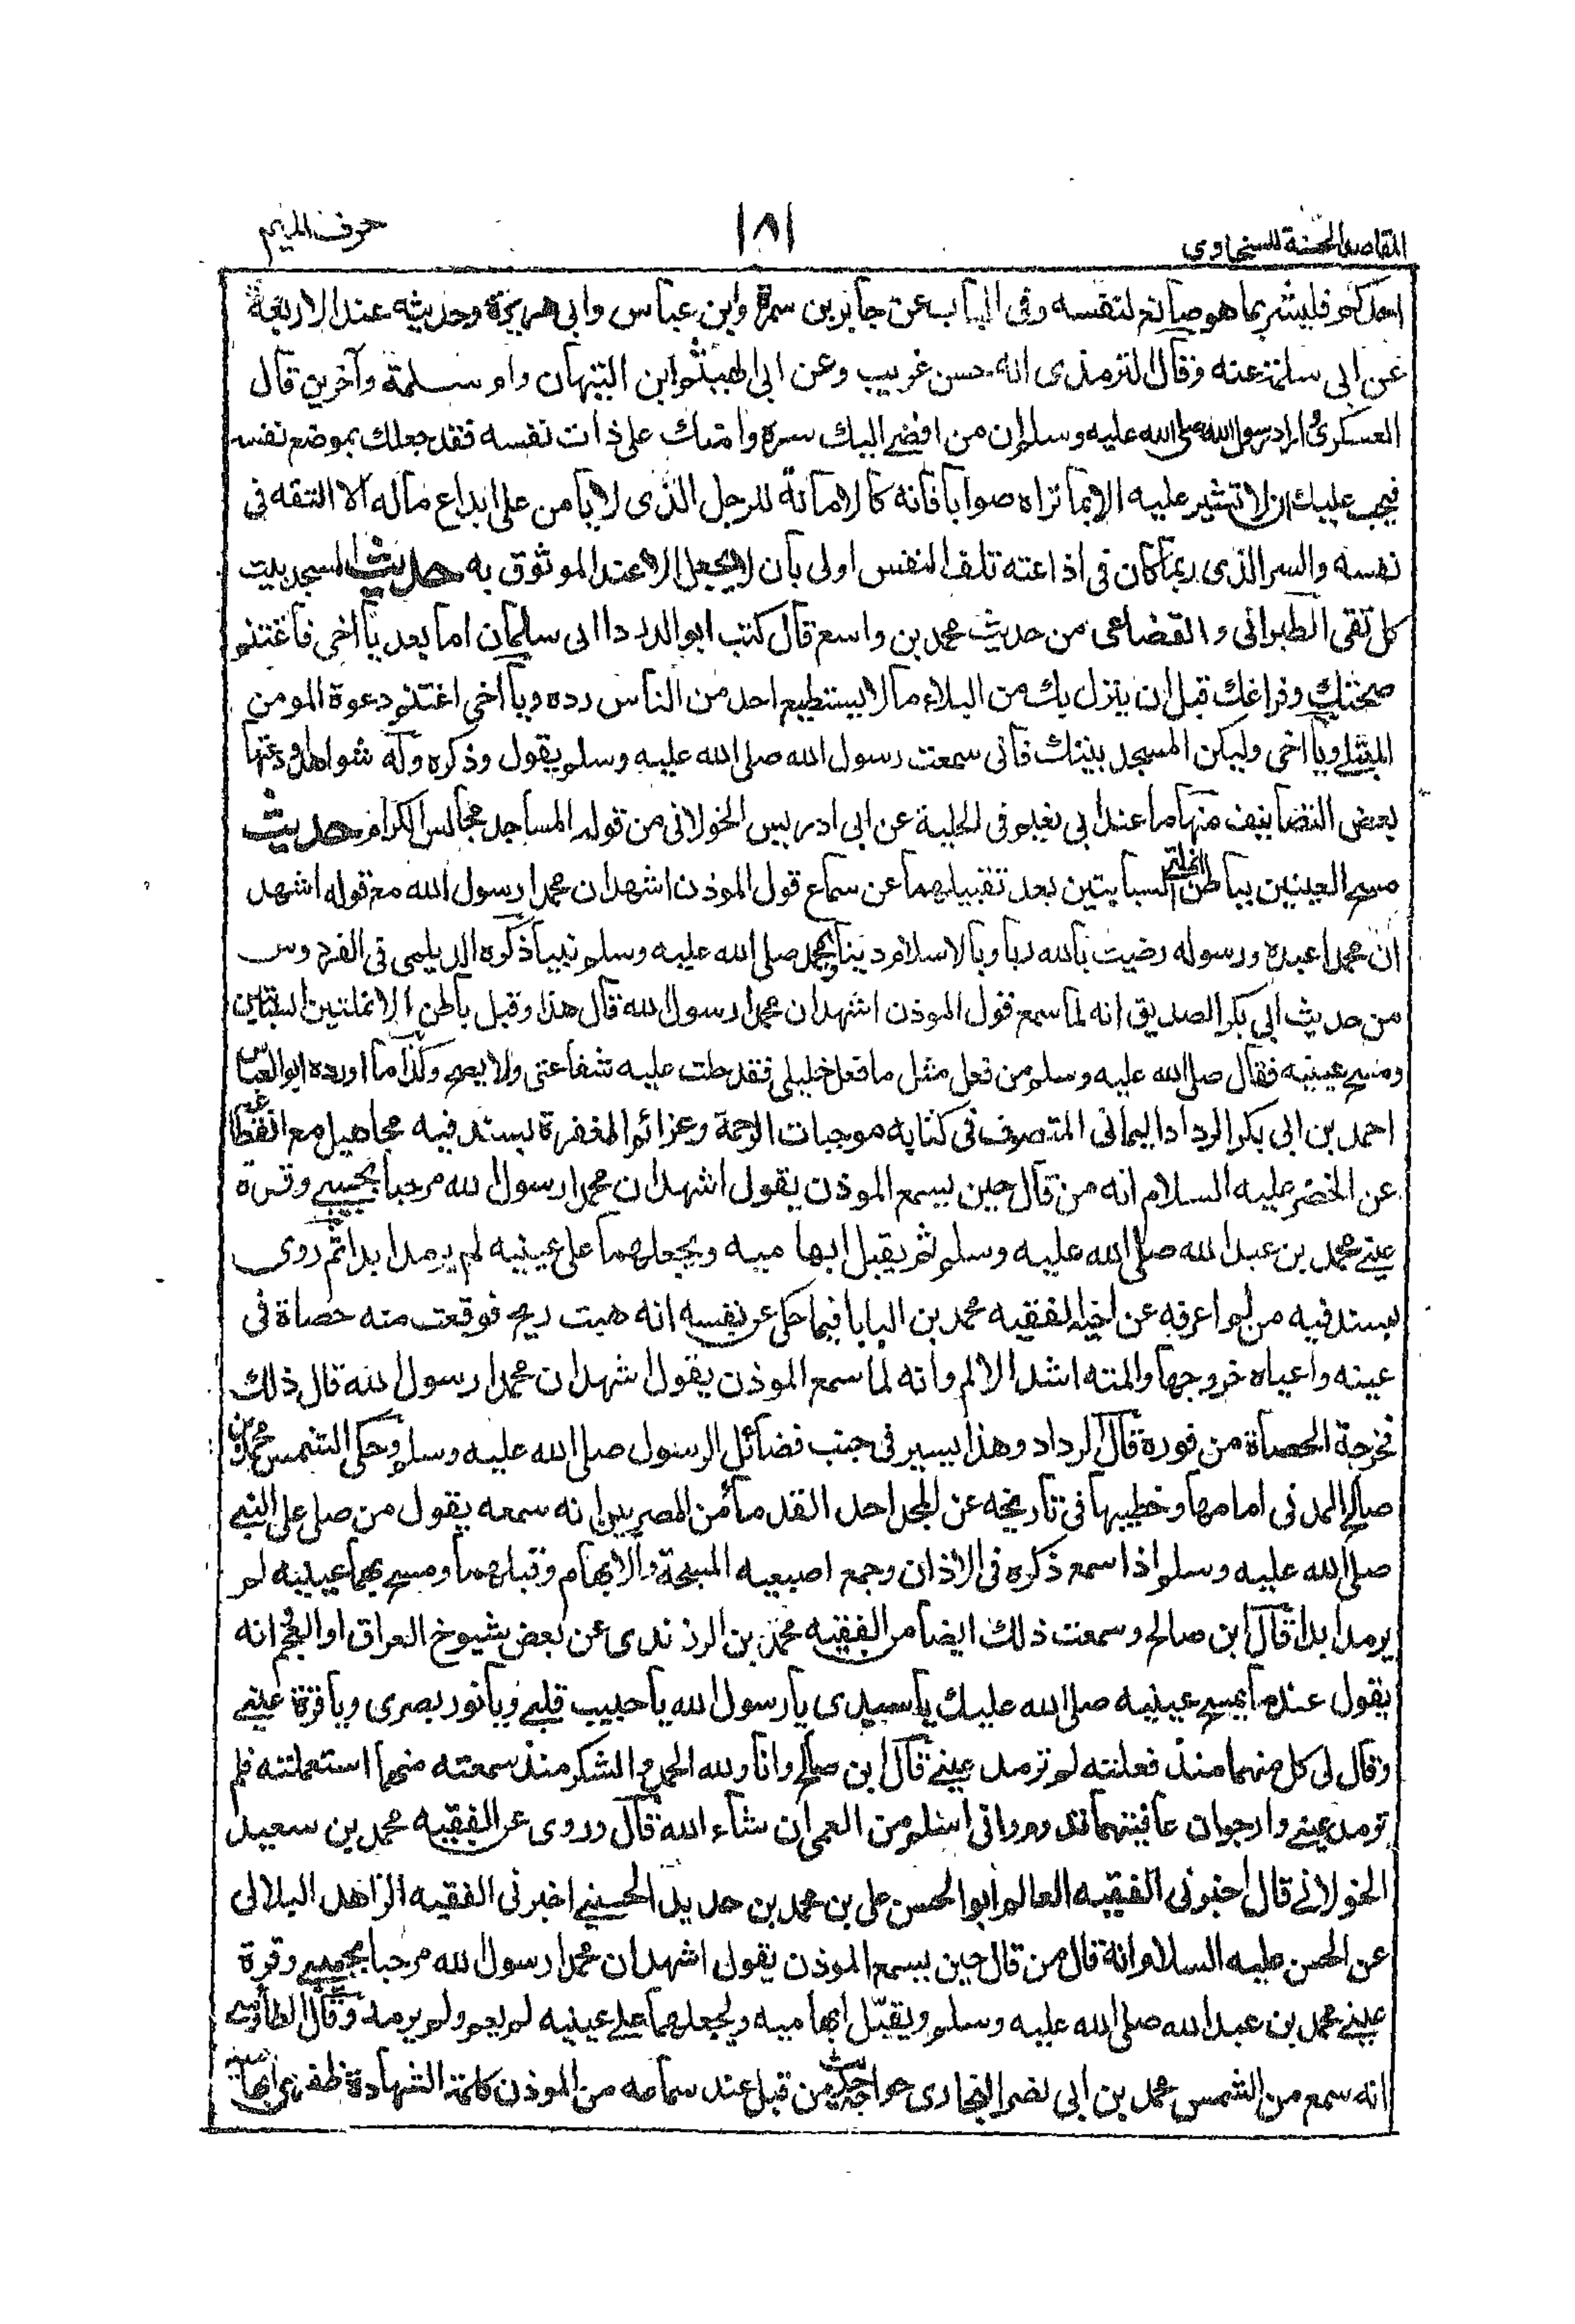 المقاصد الحسنة للسخاوى
١٨١
حرف الميم
احدكم فليشر بما هو صانع لنفسه وفى الباب عن جابر بن سمرة وابن عباس وابى هريرة وحديثه عند الاربعة
عن ابى سلمة عنه وقال الترمذى انه حسن غريب وعن ابى الهيثم ابن التيهان وام سلمة وآخرين قال
العسكرى اراد رسول الله صلى الله عليه وسلم ان من افضى اليك سره وامنك على ذات نفسه فقد جعلك بموضع نفسه
فيجب عليك ان لا تشير عليه الا بما تراه صوابا فانه كالامانة للرجل الذى لا يامن على ايداع ماله الا الثقة فى
نفسه والسر الذى ربما كان فى اذاعته تلف النفس اولى بان لا يجعل الا عند الموثوق به حديث المسجد بيت
كل تقى الطبرانى والقضاعى من حديث محمد بن واسع قال كتب ابو الدردا الى سلمان اما بعد يا اخى فاغتنم
صحتك وفراغك قبل ان ينزل بك من البلاء ما لا يستطيع احد من الناس رده ويا اخى اغتنم دعوة المومن
المبتلى ويا اخى وليكن المسجد بيتك فانى سمعت رسول الله صلى الله عليه وسلم يقول وذكره وله شواهد وعتها
بعض التصانيف منها ما عند ابى نعيم فى الحلية عن ابى ادريس الخولانى من قوله المساجد مجالس الكرام حديث
مسح العينين بباطن انملتى السبابتين بعد تقبيلهما عن سماع قول الموذن اشهد ان محمدا رسول الله مع قوله اشهد
ان محمدا عبده ورسوله رضيت بالله ربا وبالاسلام دينا وبمحمد صلى الله عليه وسلم نبيا ذكره الديلمى فى الفردوس
من حديث ابى بكر الصديق انه لما سمع قول الموذن اشهد ان محمدا رسول الله قال هذا وقبل باطن الانملتين السبابتين
ومسح عينيه فقال صلى الله عليه وسلم من فعل مثل ما فعل خليلى فقد حلت عليه شفاعتى ولا يصح وكذا ما اورده ابو العباس
احمد بن ابى بكر الرداد اليمانى المتصوف فى كتابه موجبات الرحمة وعزائم المغفرة بسند فيه مجاهيل مع انقطاعه
عن الخضر عليه السلام انه من قال حين يسمع الموذن يقول اشهد ان محمدا رسول الله مرحبا بحبيبى وقرة
عينى محمد بن عبد الله صلى الله عليه وسلم ثم يقبل ابهاميه ويجعلهما على عينيه لم يرمد ابدا ثم روى
بسند فيه من لم اعرفه عن اخيه الفقيه محمد بن البابا فيما حكى عن نفسه انه هبت ريح فوقعت منه حصاة فى
عينه واعياه خروجها والمته اشد الالم وانه لما سمع الموذن يقول اشهد ان محمدا رسول الله قال ذلك
فخرجة الحصاة من فوره قال الرداد وهذا يسير فى جنب فضائل الرسول صلى الله عليه وسلم وحكى الشمس محمد بن
صالح المدنى امامها وخطيبها فى تاريخه عن المجد احد القدما من المصريين انه سمعه يقول من صلى على النبى
صلى الله عليه وسلم اذا سمع ذكره فى الاذان وجمع اصبعيه المسبحة والابهام وقبلهما ومسح بهما عينيه لم
يرمد ابدا قال ابن صالح وسمعت ذلك ايضا من الفقيه محمد بن الزرندى عن بعض شيوخ العراق او العجم انه
يقول عندما يمسح عينيه صلى الله عليك يا سيدى يا رسول الله يا حبيب قلبى ويا نور بصرى ويا قرة عينى
وقال لى كل منهما منذ فعلته لم ترمد عينى قال ابن صالح وانا ولله الحمد والشكر منذ سمعته منهما استعملته فلم
ترمد عينى وارجو ان عافيتهما تدوم وانى اسلم من العمى ان شاء الله قال وروى عن الفقيه محمد بن سعيد
الخولانى قال اخبرنى الفقيه العالم ابو الحسن على بن محمد بن حديد الحسينى اخبرنى الفقيه الزاهد البلالى
عن الحسن عليه السلام انه قال من قال حين يسمع الموذن يقول اشهد ان محمدا رسول الله مرحبا بحبيبى وقرة
عينى محمد بن عبد الله صلى الله عليه وسلم ويقبل ابهاميه ويجعلهما على عينيه لم يعم ولم يرمد وقال الطاوسى
انه سمع من الشمس محمد بن ابى نصر البخارى خواجه حديث من قبل عند سماعه من الموذن كلمة الشهادة ظفرى ابهاميه